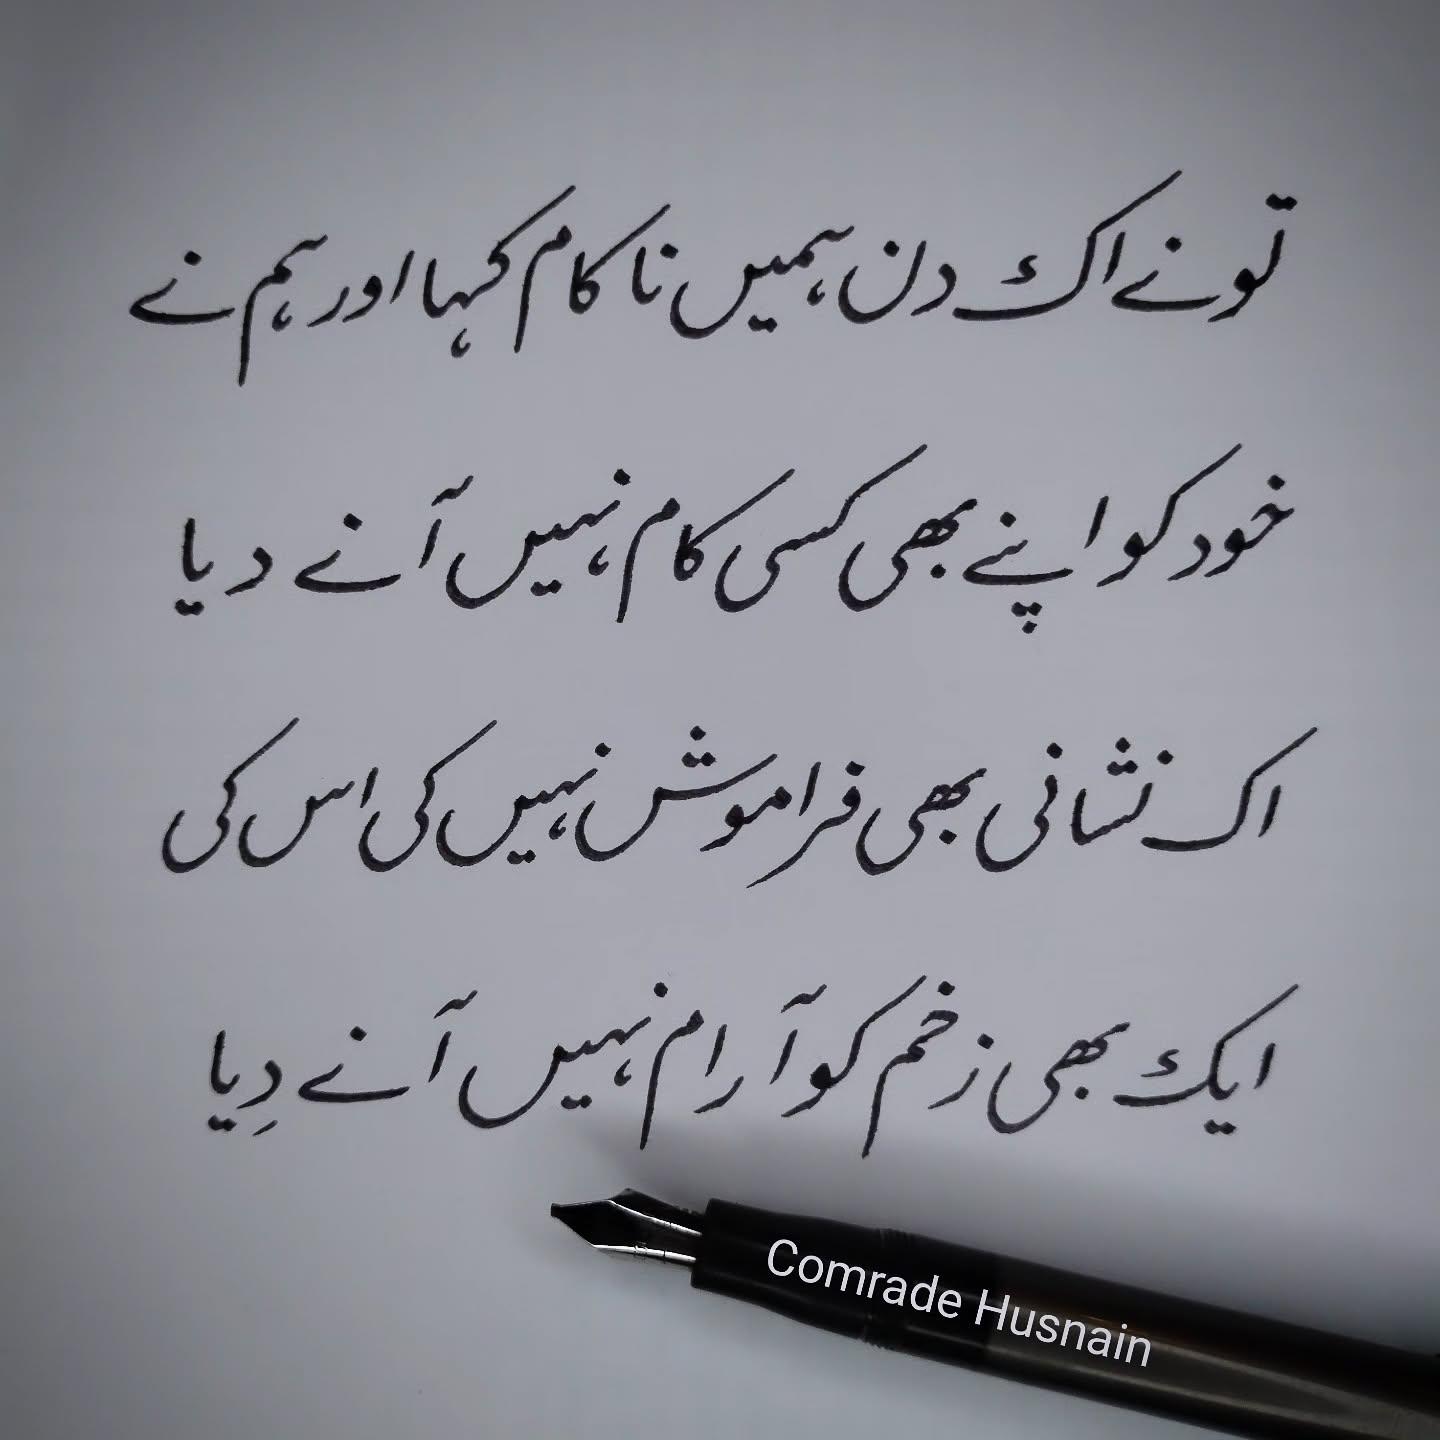 تو نے اک دن ہمیں ناکام کہا اور ہم نے
خود کو اپنے بھی کسی کام نہیں آنے دیا
اک نشانی بھی فراموش نہیں کی اس کی
ایک بھی زخم کو آرام نہیں آنے دِیا
Comrade Husnain